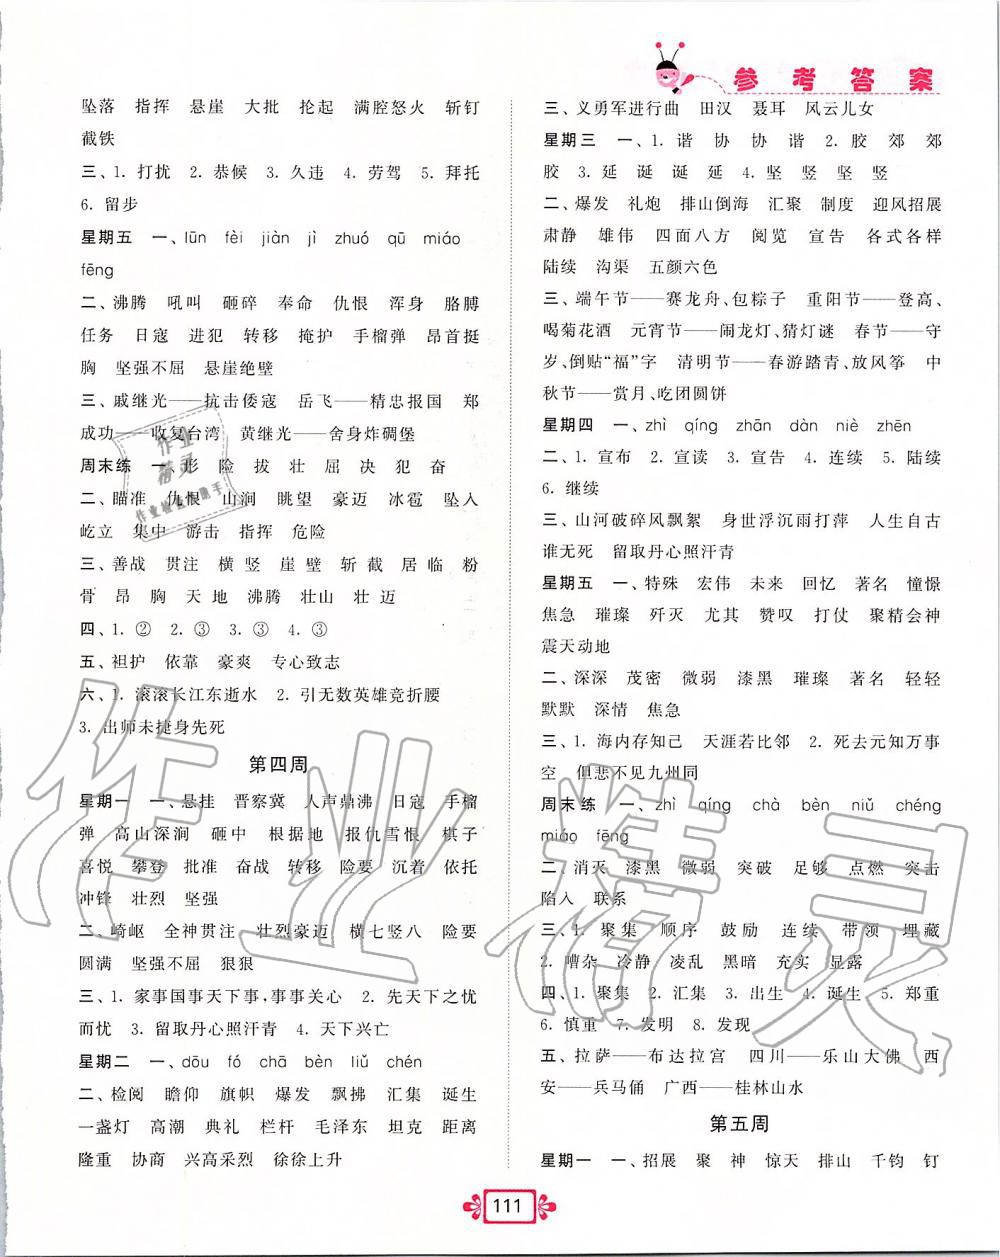 参考答案
坠落 指挥 悬崖 大批 抢起 满腔怒火 斩钉
截铁
三、1. 打扰 2. 恭候 3. 久违 4. 劳驾 5. 拜托
6. 留步
星期五 一、lūn fèi jiàn jì zhuó qū miáo
fēng
二、沸腾 吼叫 砸碎 奉命 仇恨 浑身 胳膊
任务 日寇 进犯 转移 掩护 手榴弹 昂首挺
胸 坚强不屈 悬崖绝壁
三、戚继光——抗击倭寇 岳飞——精忠报国 郑
成功——收复台湾 黄继光——舍身炸碉堡
周末练 一、形 险 拔 壮 屈 决 犯 奋
二、瞄准 仇恨 山涧 眺望 豪迈 冰雹 坠入
屹立 集中 游击 指挥 危险
三、善战 贯注 横 竖 崖 壁 斩 截 居 临 粉
骨 昂 胸 天 地 沸腾 壮山 壮 迈
四、1. ② 2. ③ 3. ③ 4. ③
五、袒护 依靠 豪爽 专心致志
六、1. 滚滚长江东逝水 2. 引无数英雄竞折腰
3. 出师未捷身先死
第四周
星期一 一、悬挂 晋察冀 人声鼎沸 日寇 手榴
弹 高山深涧 砸中 根据地 报仇雪恨 棋子
喜悦 攀登 批准 奋战 转移 险要 沉着 依托
冲锋 壮烈 坚强
二、崎岖 全神贯注 壮烈豪迈 横七竖八 险要
圆满 坚强不屈 狠狠
三、1. 家事国事天下事,事事关心 2. 先天下之忧
而忧 3. 留取丹心照汗青 4. 天下兴亡
星期二 一、dōu fó chā bèn liǔ chén
二、检阅 瞻仰 旗帜 爆发 飘拂 汇集 诞生
一盏灯 高潮 典礼 栏杆 毛泽东 坦克 距离
隆重 协商 兴高采烈 徐徐上升
三、义勇军进行曲 田汉 聂耳 风云儿女
星期三 一、1. 谐 协 协 谐 2. 胶 郊 郊
胶 3. 延 诞 诞 延 4. 坚 竖 坚 竖
二、爆发 礼炮 排山倒海 汇聚 制度 迎风招展
肃静 雄伟 四面八方 阅览 宣告 各式各样
陆续 沟渠 五颜六色
三、端午节——赛龙舟、包粽子 重阳节——登高、
喝菊花酒 元宵节——闹龙灯、猜灯谜 春节——守
岁、倒贴“福”字 清明节——春游踏青、放风筝 中
秋节——赏月、吃团圆饼
星期四 一、zhì qíng zhān dàn niè zhēn
二、1. 宣布 2. 宣读 3. 宣告 4. 连续 5. 陆续
6. 继续
三、山河破碎风飘絮 身世浮沉雨打萍 人生自古
谁无死 留取丹心照汗青
星期五 一、特殊 宏伟 未来 回忆 著名 憧憬
焦急 璀璨 歼灭 尤其 赞叹 打仗 聚精会神
震天动地
二、深深 茂密 微弱 漆黑 璀璨 著名 轻轻
默默 深情 焦急
三、1. 海内存知己 天涯若比邻 2. 死去元知万事
空 但悲不见九州同
周末练 一、zhì qíng chà bèn niǔ chéng
miáo fēng
二、消灭 漆黑 微弱 突破 足够 点燃 突击
陷入 联系
三、1. 聚集 顺序 鼓励 连续 带领 埋藏
2. 嘈杂 冷静 凌乱 黑暗 充实 显露
四、1. 聚集 2. 汇集 3. 出生 4. 诞生 5. 郑重
6. 慎重 7. 发明 8. 发现
五、拉萨——布达拉宫 四川——乐山大佛 西
安——兵马俑 广西——桂林山水
第五周
星期一 一、招展 聚 神 惊天 排山 千钧 钉
111
作业精灵